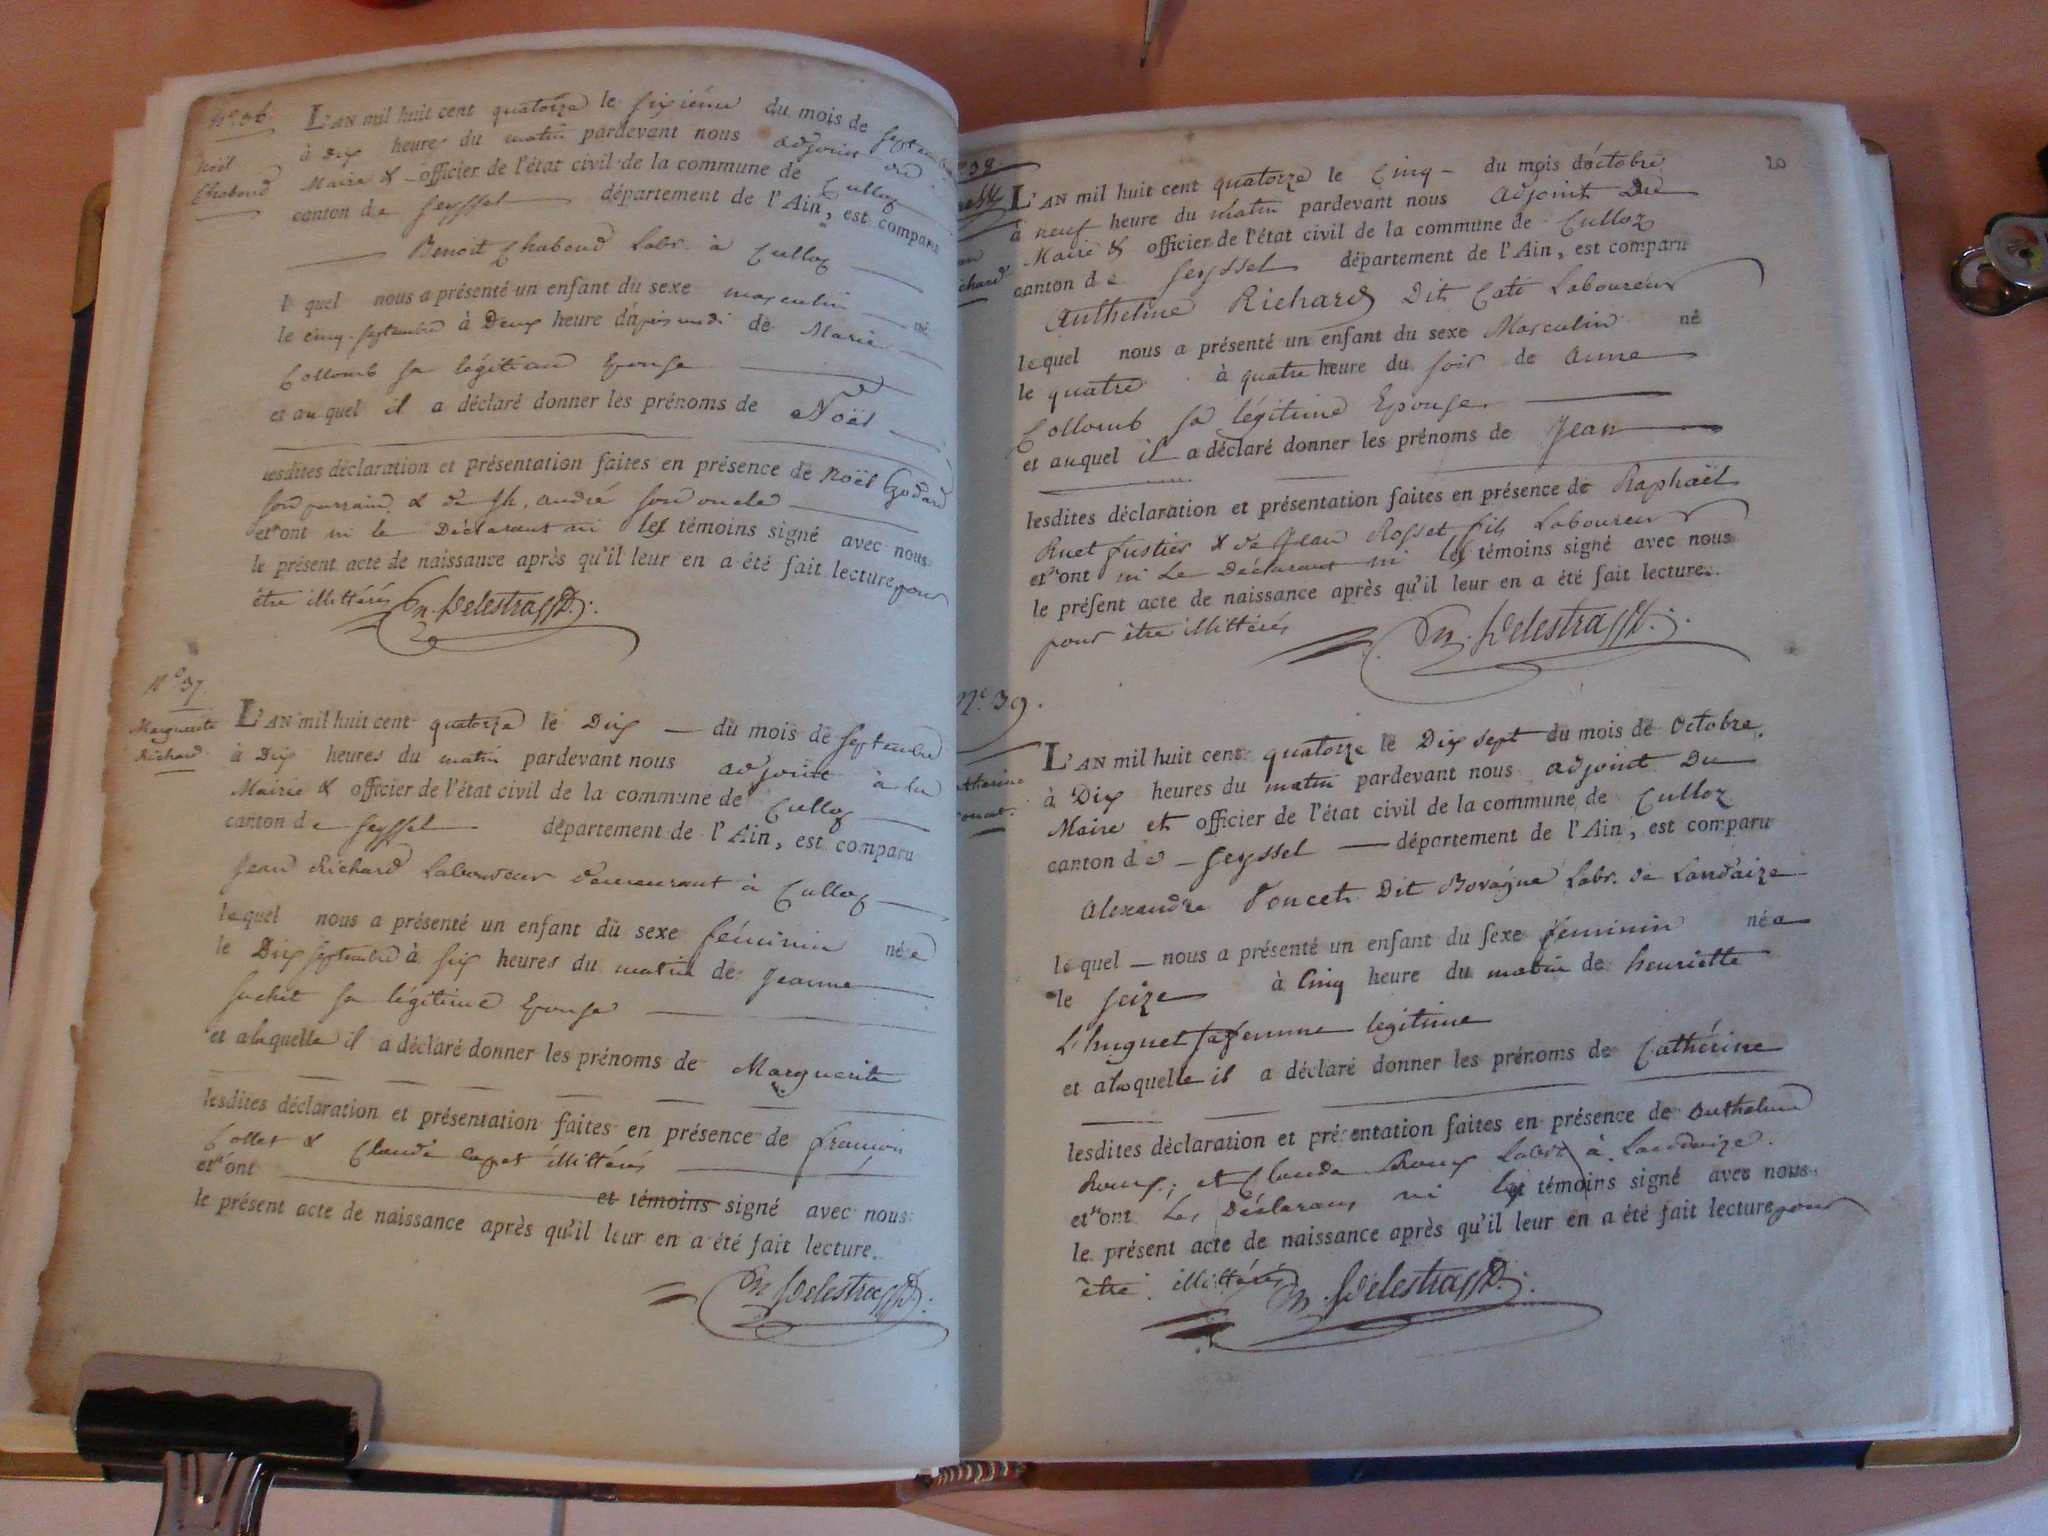 N.º 36
Noël
Chaboud
L'AN mil huit cent quatorze le sixième du mois de septembre
à dix heures du matin pardevant nous adjoint du
Maire & officier de l'état civil de la commune de Culloz
canton de Seyssel département de l'Ain, est comparu
Benoit Chaboud Labr. à Culloz
lequel nous a présenté un enfant du sexe masculin né
le cinq septembre à Deux heure d'après midi de Marie
Collomb sa légitime Epouse
et auquel il a déclaré donner les prénoms de Noël
lesdites déclaration et présentation faites en présence de Noël Godard
son parrain & de Jh. andré son oncle
et n'ont ni le Déclarant ni les témoins signé avec nous
le présent acte de naissance après qu'il leur en a été fait lecture pour
être illittérés
N.º 37.
Marguerite
Richard
L'AN mil huit cent quatorze le Dix du mois de septembre
à Dix heures du matin pardevant nous adjoint à la
Mairie & officier de l'état civil de la commune de Culloz
canton de Seyssel département de l'Ain, est comparu
Jean Richard Laboureur demeurant à Culloz
lequel nous a présenté un enfant du sexe féminin née
le Dix septembre à six heures du matin de Jeanne
Suchet sa légitime Epouse
et alaquelle il a déclaré donner les prénoms de Marguerite
lesdites déclaration et présentation faites en présence de françois
Collet & Claude illittérés
et n'ont et témoins signé avec nous
le présent acte de naissance après qu'il leur en a été fait lecture.
20
38
L'AN mil huit cent quatorze le Cinq du mois d'octobre
à neuf heure du matin pardevant nous adjoint du
Maire & officier de l'état civil de la commune de Culloz
canton de Seyssel département de l'Ain, est comparu
Anthelme Richard Dit Cati Laboureur
lequel nous a présenté un enfant du sexe Masculin né
le quatre à quatre heure du soir de anne
Collomb sa légitime Epouse
et auquel il a déclaré donner les prénoms de Jean
lesdites déclaration et présentation faites en présence de Raphaël
Ruet fustier & de Jean Rosset fils Laboureur
et n'ont ni Le Déclarant ni les témoins signé avec nous
le présent acte de naissance après qu'il leur en a été fait lecture.
pour être illittérés
N.º 39.
L'AN mil huit cent quatorze le Dix sept du mois de Octobre
à Dix heures du matin pardevant nous adjoint Du
Maire et officier de l'état civil de la commune de Culloz
canton de Seyssel département de l'Ain, est comparu
Alexandre Poncet Dit Bovagne Labr. de Landaize
lequel nous a présenté un enfant du sexe féminin née
le seize à Cinq heure du matin de henriette
L'huguet sa femme legitime
et alaquelle il a déclaré donner les prénoms de Cathérine
lesdites déclaration et présentation faites en présence de Anthelme
Roux, et Claude Roux Labrs à Landaize.
et n'ont Les Déclarans ni les témoins signé avec nous
le présent acte de naissance après qu'il leur en a été fait lecture pour
être illittérés